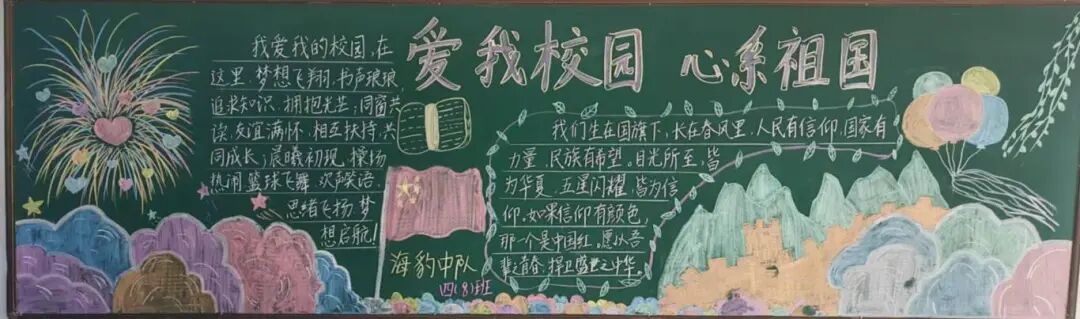 爱我校园 心系祖国
我爱我的校园,在
这里,梦想飞翔,书声琅琅,
追求知识,拥抱光芒;同窗共
读,友谊满怀,相互扶持,共
同成长;晨曦初现,操场
热闹,篮球飞舞,欢声笑语,
思绪飞扬,梦
想启航!
我们生在国旗下,长在春风里,人民有信仰,国家有
力量,民族有希望。目光所至,皆
为华夏,五星闪耀,皆为信
仰。如果信仰有颜色,
那一个是中国红。愿以吾
辈之青春,捍卫盛世之中华。
海豹中队
四(8)班